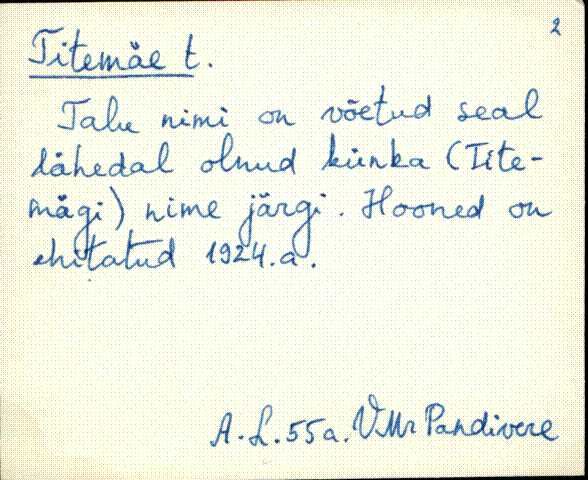 2
Titemäe t.
Talu nimi on võetud seal
lähedal olnud künka (Tite-
mägi) nime järgi. Hooned on
ehitatud 1924.a.
A.L.55a. VMr Pandivere